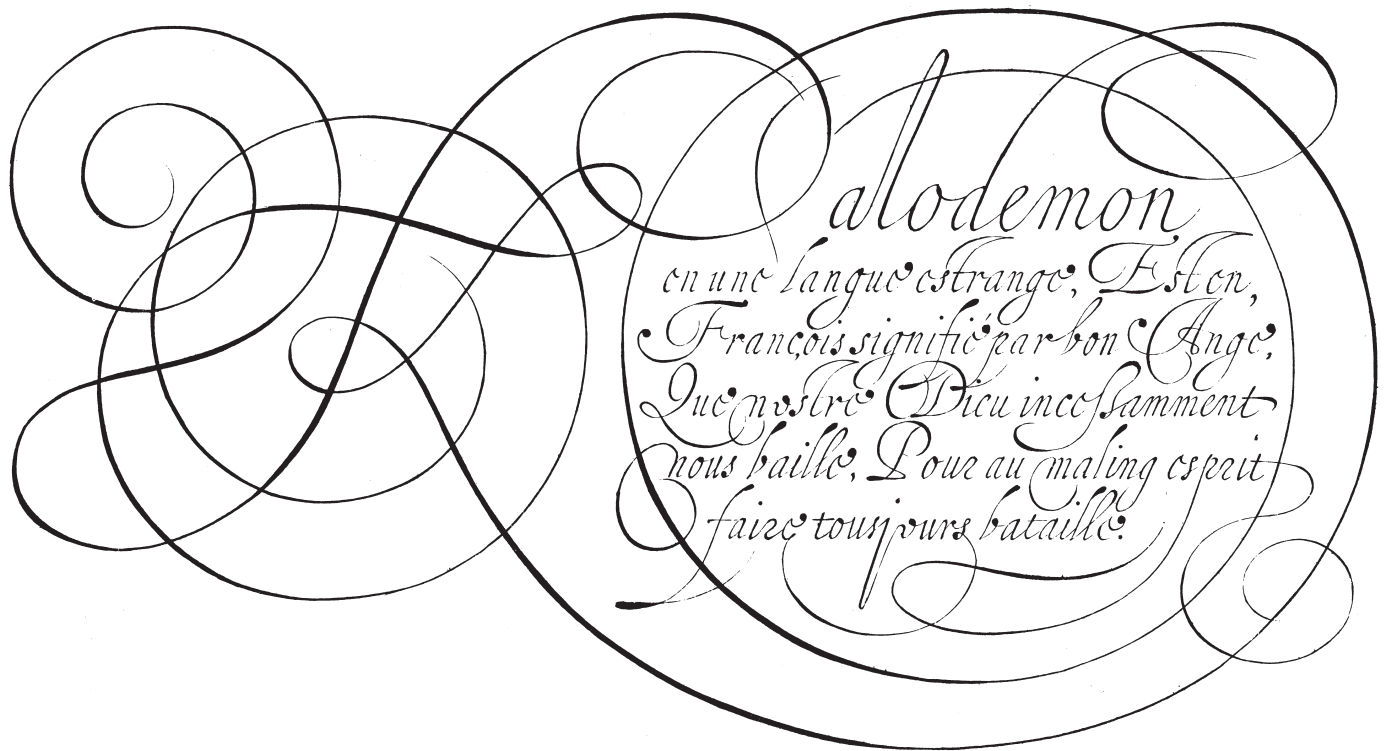 Calodemon
en une langue estrange, Est en,
François signifié par bon Ange,
Que nostre Dieu incessamment
nous baille, Pour au maling esprit
faire tousjours bataille.